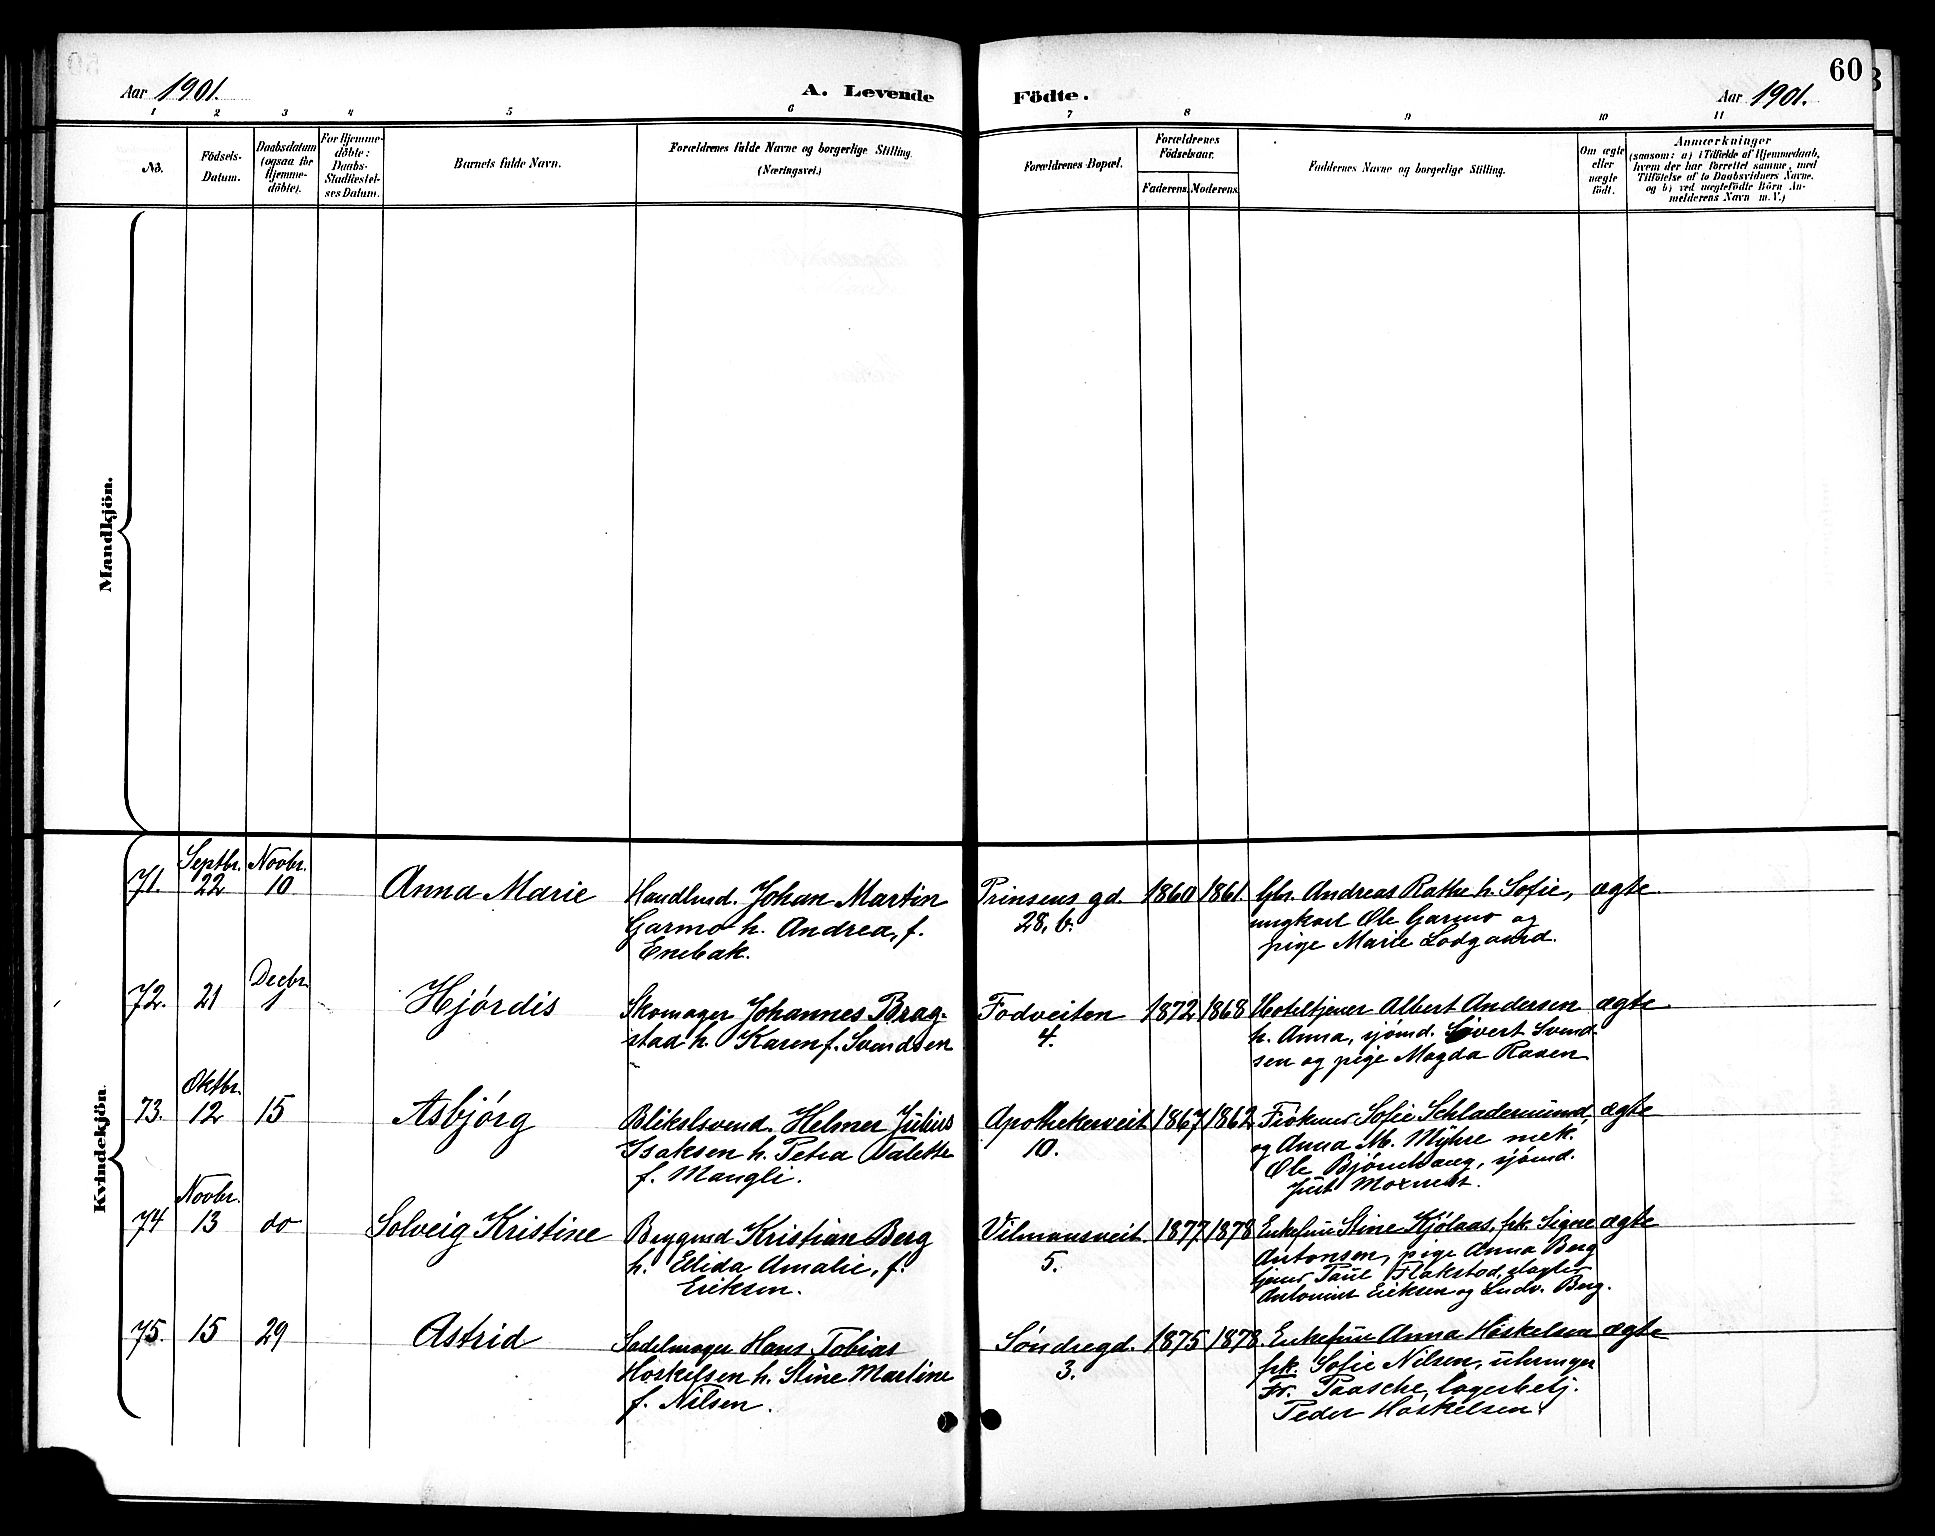 60
Aar 1901.
A. Levende
Födte.
Aar 1901.
1 2 3 4 5 6 7 8 9 10 11
No.
Födsels-
Datum.
Daabsdatum
(ogsaa for
Hjemme-
döbte).
For Hjemme-
döbte:
Daabs-
Stadfæstel-
ses Datum.
Barnets fulde Navn.
Forældrenes fulde Navne og borgerlige Stilling.
(Næringsvei.)
Forældrenes Bopæl.
Forældrenes
Födselsaar.
Faderens. Moderens.
Faddernes Navne og borgerlige Stilling.
Om ægte
eller
uægte
födt.
Anmærkninger
(saasom: a) i Tilfælde af Hjemmedaab,
hvem der har forrettet samme, med
Tilföielse af to Daabsvidners Navne,
og b) ved uægtefödte Börn An-
melderens Navn m.V.)
Mandkjön.
Kvindekjön.
71.
Septbr.
22
Novbr.
10
Anna Marie
Handlmd. Johan Martin
Garmo h. Andrea, f.
Enebak.
Prinsens gd.
28, b.
1860 1861.
Gbr. Andreas Rathe h. Sofie,
ungkarl Ole Garmo og
pige Marie Lodgaard.
ægte
72.
21
Decbr.
1
Hjördis
Skomager Johannes Brag-
stad h. Karen f. Svendsen
Fodveiten
4.
1872 1868
Hoteltjener Albert Andersen
h. Anna, sjömd. Sivert Svend-
sen og pige Magda Raven
ægte
73.
Oktbr.
12
15
Asbjörg
Bliksl.svend. Helmer Julius
Isaksen h. Petra Valette
f. Mangli.
Apothekerveit
10.
1867 1862
Frökener Sofie Schladermund,
og Anna M. Myhre mek.
Ole Bjørnhaug, sjömd.
ægte
74
Novbr.
13
do
Solveig Kristine
Brygmd Kristian Berg
h. Elida Amalie, f.
Eriksen.
Vilmansveit.
5.
1877 1878
Enkefrue Stine Kjölaas, frk. Signe
Antonsen, pige Anna Berg
tjener Paul Flakstad, slagter
Antonius Eriksen og Ludv. Berg.
ægte
75.
15
29
Astrid
Sadelmager Hans Tobias
Hoskelsen h. Stine Martine
f. Nilsen.
Søndregd.
3.
1875 1878.
Enkefrue Anna Hoskelsen
frk. Sofie Nilsen, uhrmager
Fr. Paasche, lagerbetj.
Peder Hoskelsen
ægte